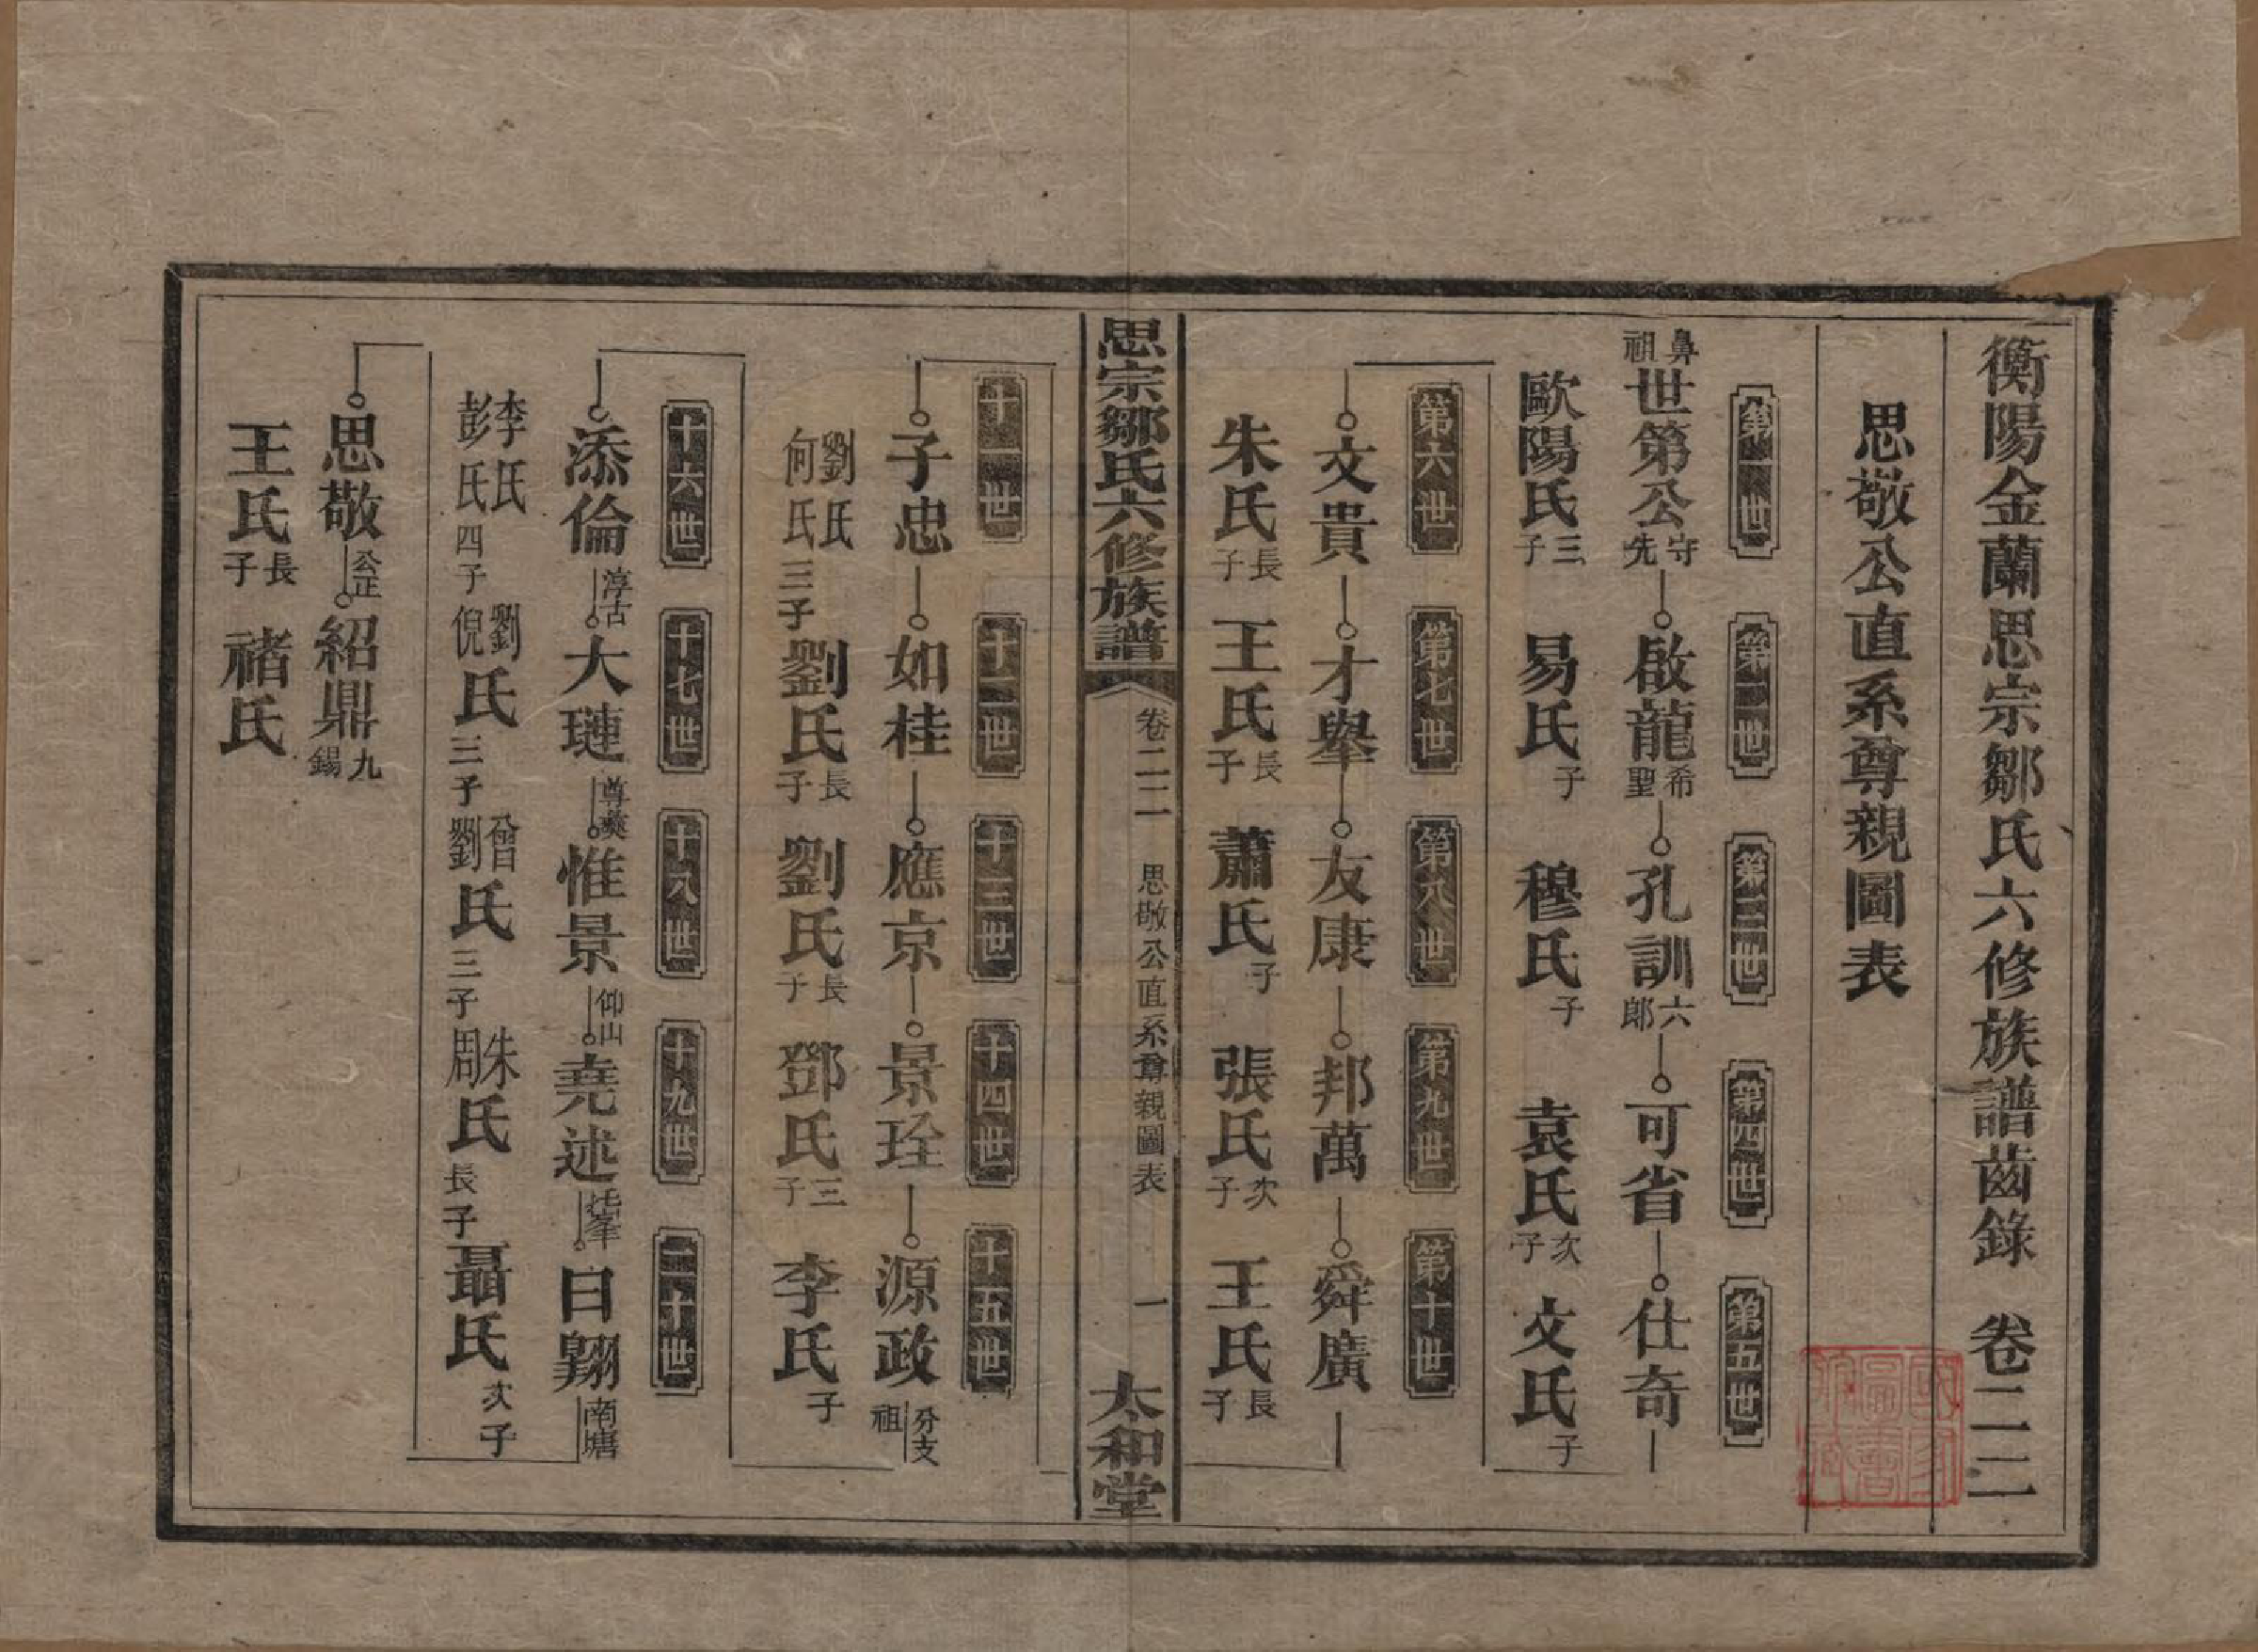 衡陽金蘭思宗鄒氏六修族譜齒錄 卷二二
思敬公直系尊親圖表
第一世 第二世 第三世 第四世 第五世
鼻祖 世第公 守先 啟龍 希聖 孔訓 六郎 可省 仕奇
歐陽氏 三子 易氏 子 穆氏 子 袁氏 次子 文氏 子
第六世 第七世 第八世 第九世 第十世
文貴 才舉 友康 邦萬 舜廣
朱氏 長子 王氏 長子 蕭氏 子 張氏 次子 王氏 長子
思宗鄒氏六修族譜 卷二二 思敬公直系尊親圖表 一 太和堂
十一世 十二世 十三世 十四世 十五世
子忠 如桂 應京 景銓 源政 分支祖
劉氏 何氏 三子 劉氏 長子 劉氏 長子 鄧氏 三子 李氏 子
十六世 十七世 十八世 十九世 二十世
添倫 淳古 大璉 尊彝 惟景 仰山 堯述 日翱 南塘
李氏 彭氏 四子 劉倪氏 三子 曾劉氏 三子 朱周氏 長子 聶氏 次子
思敬 公正 紹鼎 九錫
王氏 長子 禇氏